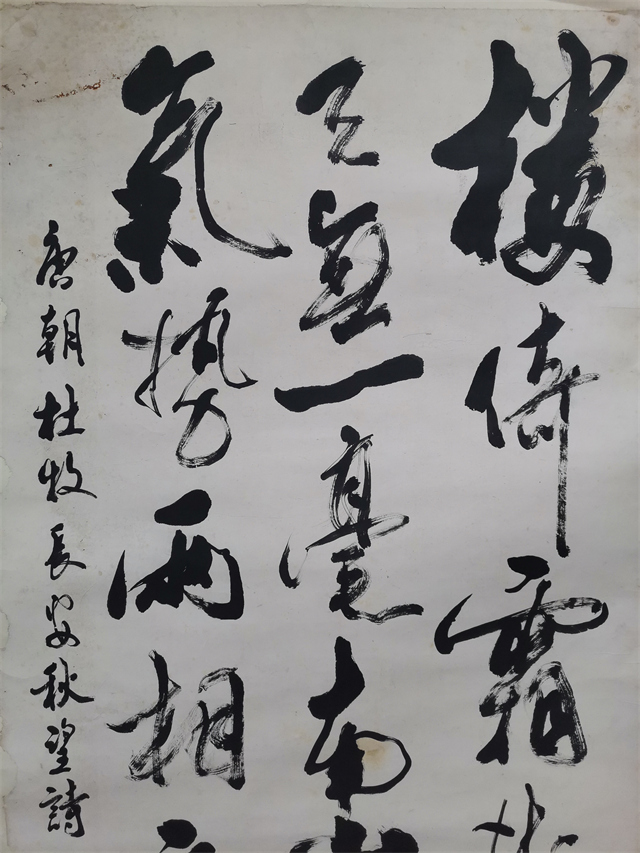 樓倚霜
天無一毫南
氣勢兩相
唐朝杜牧長安秋望詩